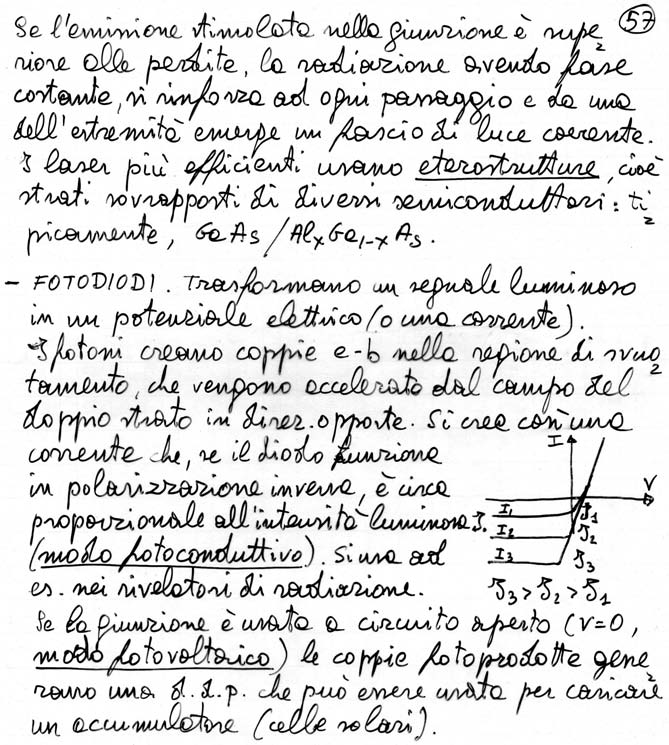 57
Se l'emissione stimolata nella giunzione è supe
riore alle perdite, la radiazione avendo fase
costante, si rinforza ad ogni passaggio e da una
dell'estremità emerge un fascio di luce coerente.
I laser più efficienti usano eterostrutture, cioè
strati sovrapposti di diversi semiconduttori: ti
picamente, GaAs/AlxGa1-xAs.
- FOTODIODI. Trasformano un segnale luminoso
in un potenziale elettrico (o una corrente).
I fotoni creano coppie e-b nella regione di svuo
tamento, che vengono accelerato dal campo del
doppio strato in direz. opposte. Si crea così una
corrente che, se il diodo funziona
in polarizzazione inversa, è circa
proporzionale all'intensità luminosa J.
(modo fotoconduttivo). Si usa ad
es. nei rivelatori di radiazione.
I
V
I1 J1
I2 J2
I3 J3
J3 > J2 > J1
Se la giunzione è usata a circuito aperto (V=0,
modo fotovoltaico) le coppie fotoprodotte gene
rano una d.d.p. che può essere usata per caricare
un accumulatore (celle solari).